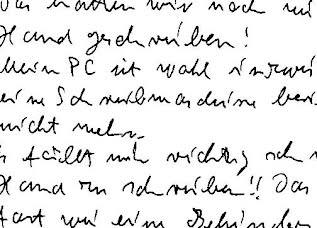 das hatten wir noch mi
Hand geschrieben!
Mein PC ist wohl inzwi
eine Schreibmaschine bes
nicht mehr.
s fällt mir richtig sch
Hand zu schreiben!! Das
fast wie eim Behinder